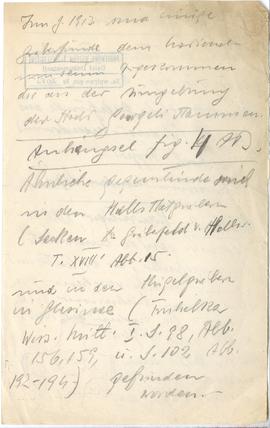 Im J. 1913 sind einige
Grabfunde dem National-
museum zugekommen
die aus der Umgebung
der Stadt stammen.
Anhängsel fig. 4 Ab.
Ähnliche Gegenstände sind
in den Hallstattgräbern
(Sacken D. Grabfeld v. Hallst.
T. XVIII. Abb. 15.
und in den Hügelgräbern
in Glasinac (Truhelka
Wiss. Mitt. I. S. 98, Abb.
156, 159, u. S. 102, Abb.
192-194) gefunden
worden.-